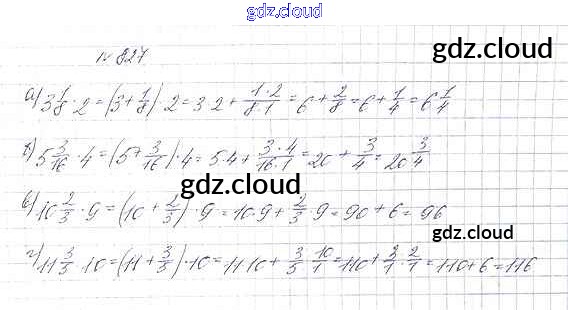 gdz.cloud
№ 827
gdz.cloud
а) 3 1/8 · 2 = (3 + 1/8) 2 = 3 2 + 1·2/8·1 = 6 + 2/8 = 6 + 1/4 = 6 1/4
gdz.cloud
б) 5 3/16 · 4 = (5 + 3/16) · 4 = 5 4 + 3·4/16·1 = 20 + 3/4 = 20 3/4
gdz.cloud
в) 10 2/3 · 9 = (10 + 2/3) · 9 = 10·9 + 2/3 · 9 = 90 + 6 = 96
gdz.cloud
г) 11 3/5 · 10 = (11 + 3/5) · 10 = 11 10 + 3/5 · 10/1 = 110 + 3/1 · 2/1 = 110 + 6 = 116
gdz.cloud